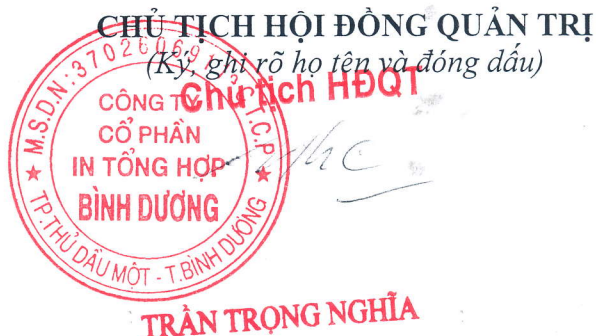 CHỦ TỊCH HỘI ĐỒNG QUẢN TRỊ
(Ký, ghi rõ họ tên và đóng dấu)
Chủ tịch HĐQT
CÔNG TY
CỔ PHẦN
IN TỔNG HỢP
BÌNH DƯƠNG
TP.THỦ DẦU MỘT - T.BÌNH DƯƠNG
TRẦN TRỌNG NGHĨA